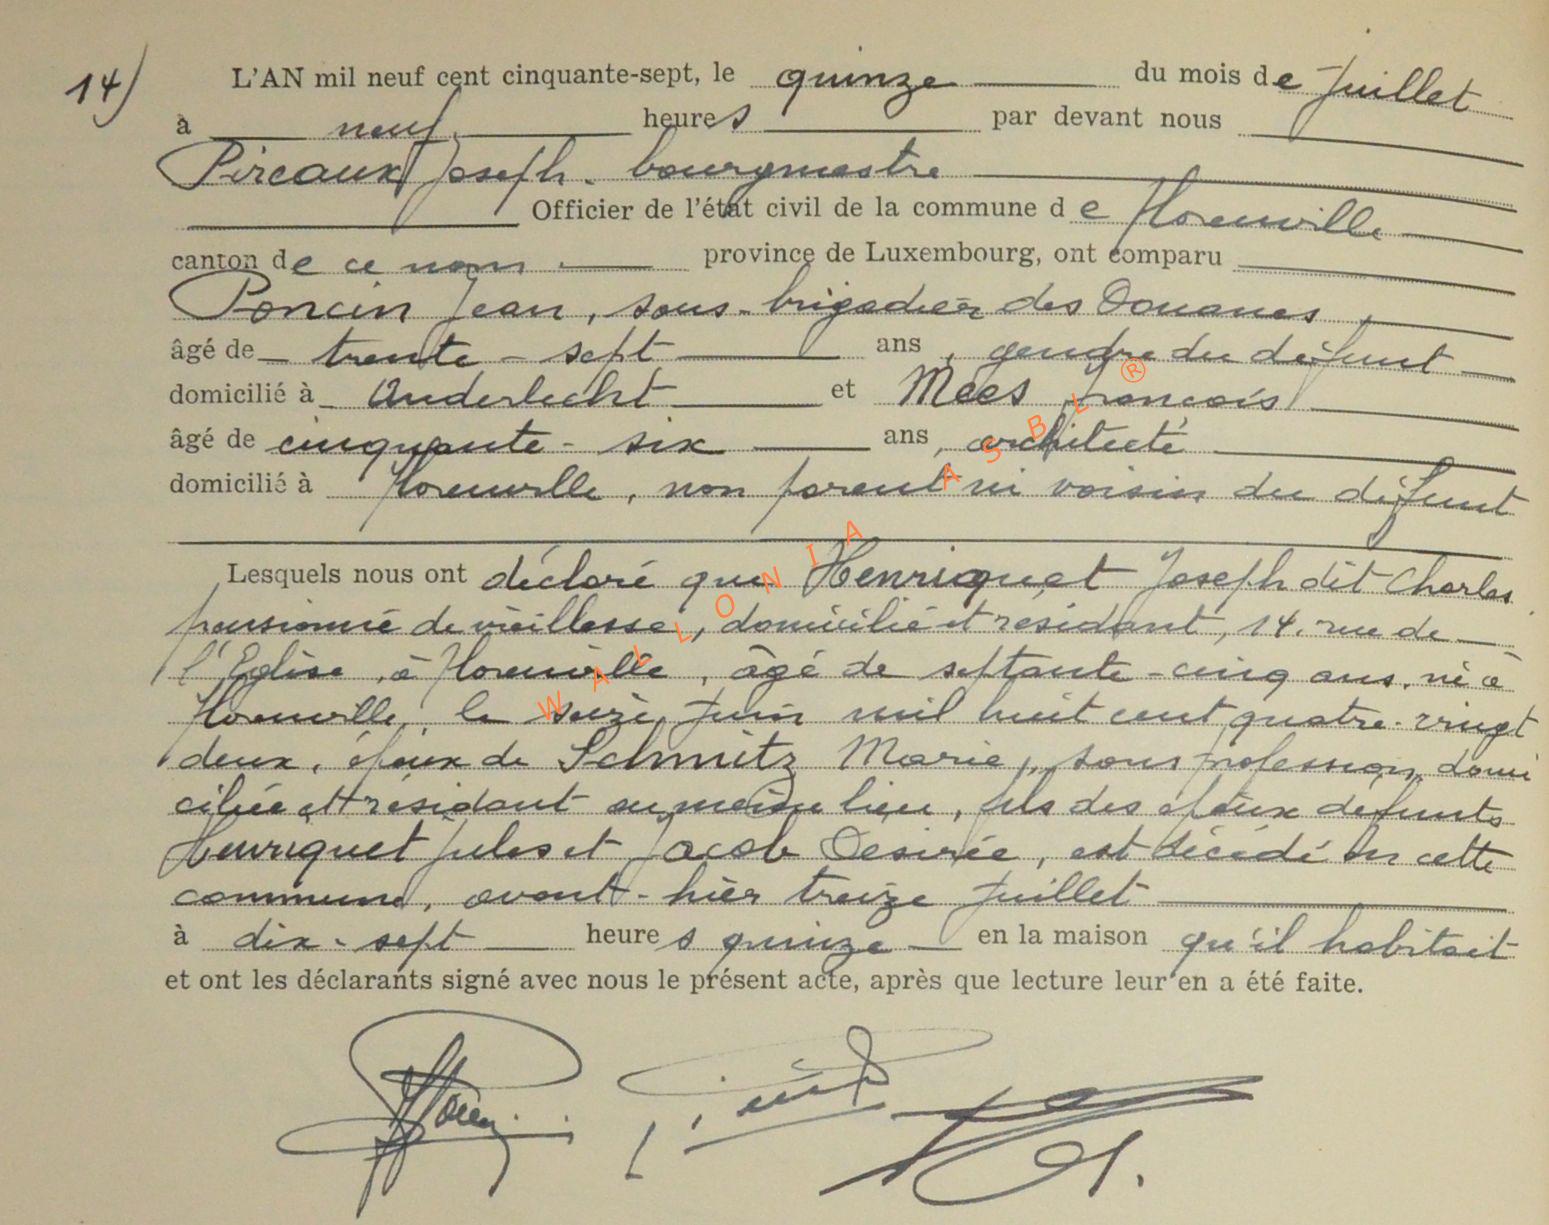 14) L'AN mil neuf cent cinquante-sept, le quinze du mois de Juillet
à neuf heures par devant nous
Pireaux Joseph. bourgmestre
Officier de l'état civil de la commune de Florenville
canton de ce nom province de Luxembourg, ont comparu
Poncin Jean, sous-brigadier des Douanes,
âgé de trente-sept ans, gendre du défunt
domicilié à Anderlecht et Mees François
âgé de cinquante-six ans, architecte
domicilié à Florenville, non parent ni voisin du défunt
Lesquels nous ont déclaré que Henriquet Joseph dit Charles
pensionné de vieillesse, domicilié et résidant, 14, rue de
l'Eglise, à Florenville, âgé de septante-cinq ans, né à
Florenville, le seize Juin mil huit cent quatre-vingt
deux, époux de Schmitz Marie, sans profession, domi
ciliée et résidant au même lieu, fils des époux défunts
Henriquet Jules et Jacob Désirée, est décédé en cette
commune, avant-hier treize Juillet
à dix-sept heures quinze en la maison qu'il habitait
et ont les déclarants signé avec nous le présent acte, après que lecture leur en a été faite.
WALLONIA ASBL ®